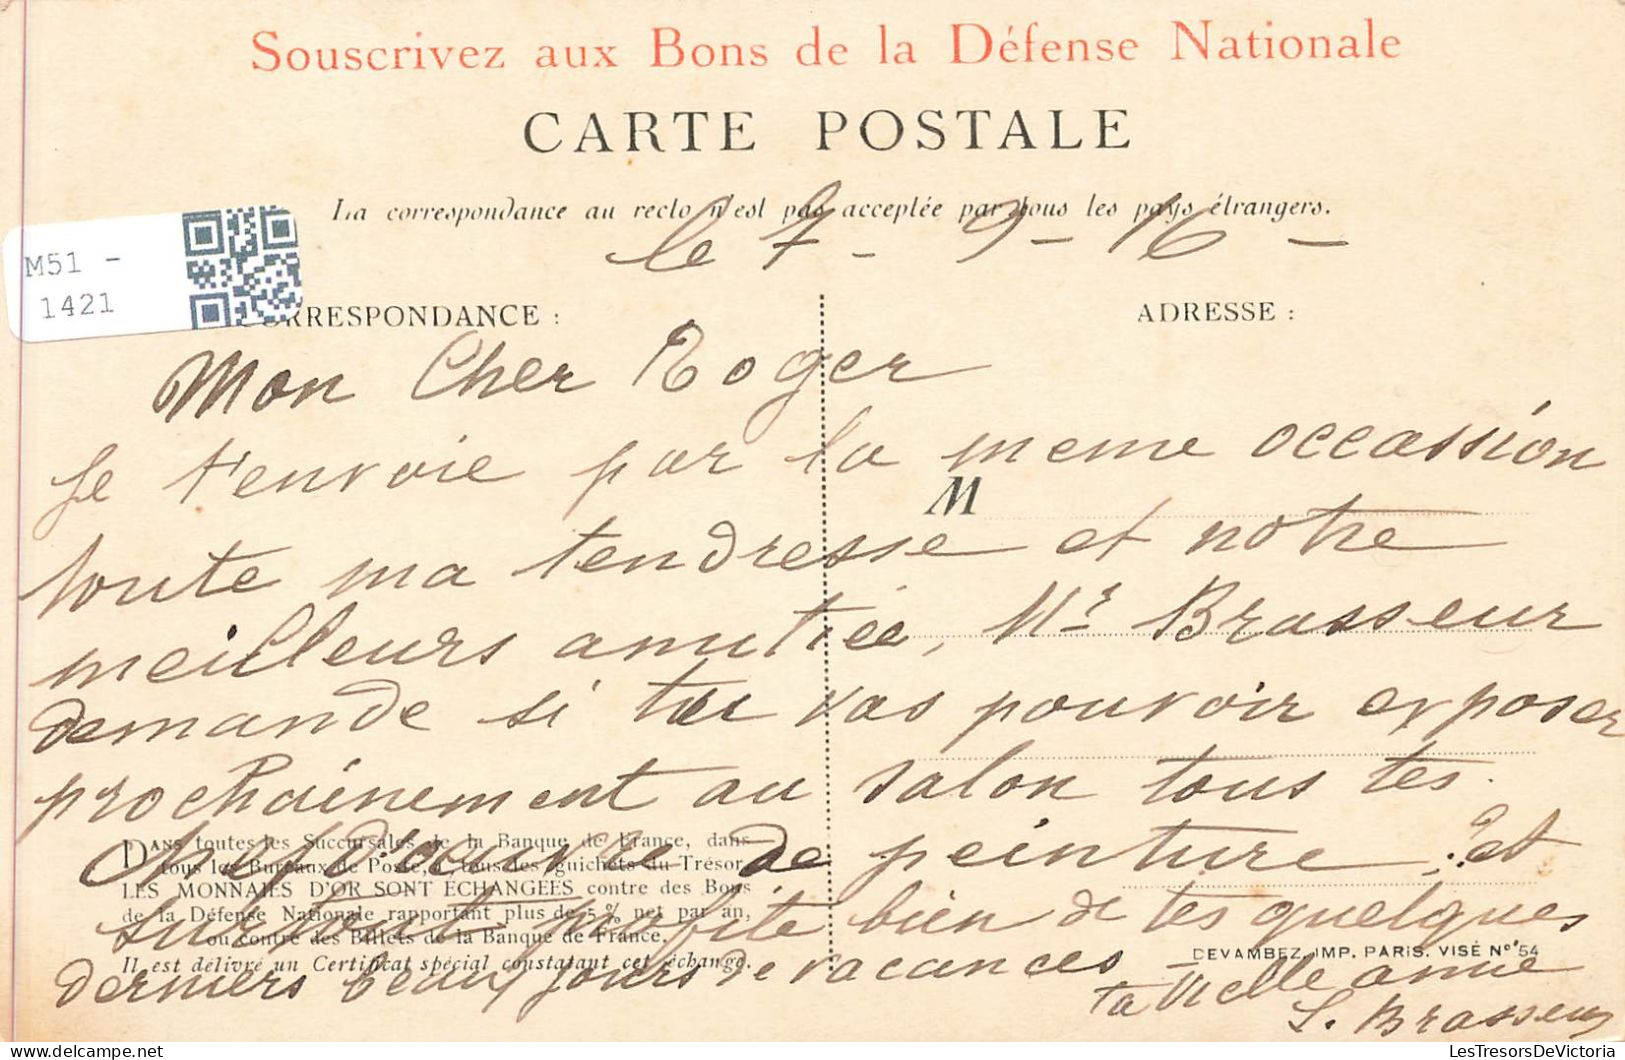 Souscrivez aux Bons de la Défense Nationale
CARTE POSTALE
La correspondance au recto n'est pas acceptée par tous les pays étrangers.
le 7 - 9 - 16 -
M51 -
1421
CORRESPONDANCE :
ADRESSE :
Mon Cher Roger
Je t'envoie par la meme occassion
M
toute ma tendresse et notre
meilleurs amitiée, Mr Brasseur
demande si tu vas pouvoir exposer
prochainement au salon tous tes
de peinture ? et
surtout profite bien de tes quelques
derniers beaux jours de vacances
ta vielle amie
S. Brasseur
DANS toutes les Succursales de la Banque de France, dans
tous les Bureaux de Poste, à tous les guichets du Trésor,
LES MONNAIES D'OR SONT ÉCHANGÉES contre des Bons
de la Défense Nationale rapportant plus de 5 % net par an,
ou contre des Billets de la Banque de France.
Il est délivré un Certificat spécial constatant cet échange.
DEVAMBEZ, IMP. PARIS. VISÉ N° 54
LesTresorsDeVictoria